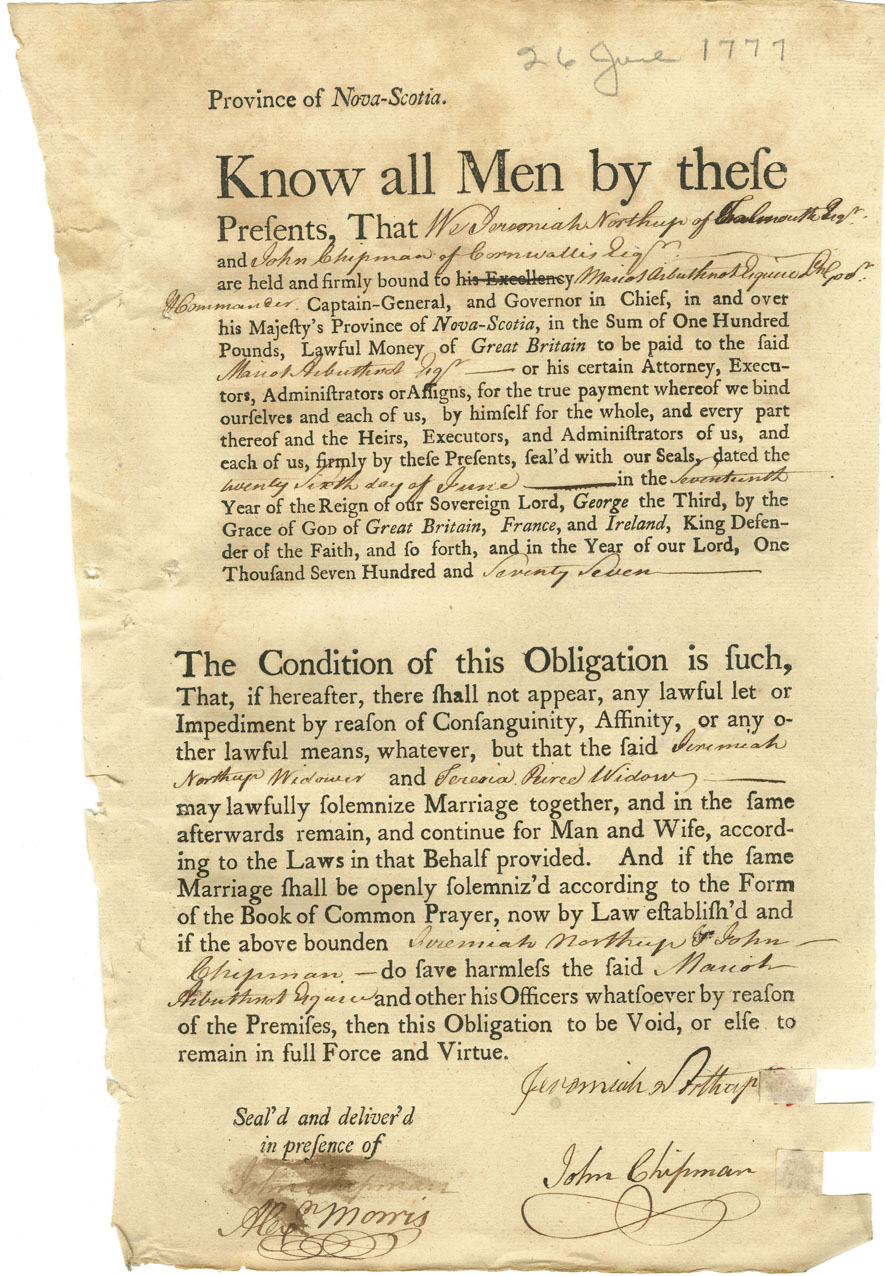 26 June 1777
Province of Nova-Scotia.
Know all Men by theſe
Preſents, That We Jeremiah Northup of Falmouth Esqr.
and John Chipman of Cornwallis Esqr.
are held and firmly bound to his Excellency Mariot Arbuthnot Esquire Lt Govr.
& Commander Captain-General, and Governor in Chief, in and over
his Majeſty's Province of Nova-Scotia, in the Sum of One Hundred
Pounds, Lawful Money of Great Britain to be paid to the ſaid
Mariot Arbuthnot Esqr — or his certain Attorney, Execu-
tors, Adminiſtrators or Aſſigns, for the true payment whereof we bind
ourſelves and each of us, by himſelf for the whole, and every part
thereof and the Heirs, Executors, and Adminiſtrators of us, and
each of us, firmly by theſe Preſents, ſeal'd with our Seals, dated the
twenty Sixth day of June — in the Seventeenth
Year of the Reign of our Sovereign Lord, George the Third, by the
Grace of God of Great Britain, France, and Ireland, King Defen-
der of the Faith, and ſo forth, and in the Year of our Lord, One
Thouſand Seven Hundred and Seventy Seven —
The Condition of this Obligation is ſuch,
That, if hereafter, there ſhall not appear, any lawful let or
Impediment by reaſon of Conſanguinity, Affinity, or any o-
ther lawful means, whatever, but that the ſaid Jeremiah
Northup Widower and Teresia Pierce Widow —
may lawfully ſolemnize Marriage together, and in the ſame
afterwards remain, and continue for Man and Wife, accord-
ing to the Laws in that Behalf provided. And if the ſame
Marriage ſhall be openly ſolemniz'd according to the Form
of the Book of Common Prayer, now by Law eſtabliſh'd and
if the above bounden Jeremiah Northup & John —
Chipman — do ſave harmleſs the ſaid Mariot
Arbuthnot Esquire and other his Officers whatſoever by reaſon
of the Premiſes, then this Obligation to be Void, or elſe to
remain in full Force and Virtue.
Jeremiah Northup
Seal'd and deliver'd
in preſence of
John Chipman
John Chipman
Alexr Morris